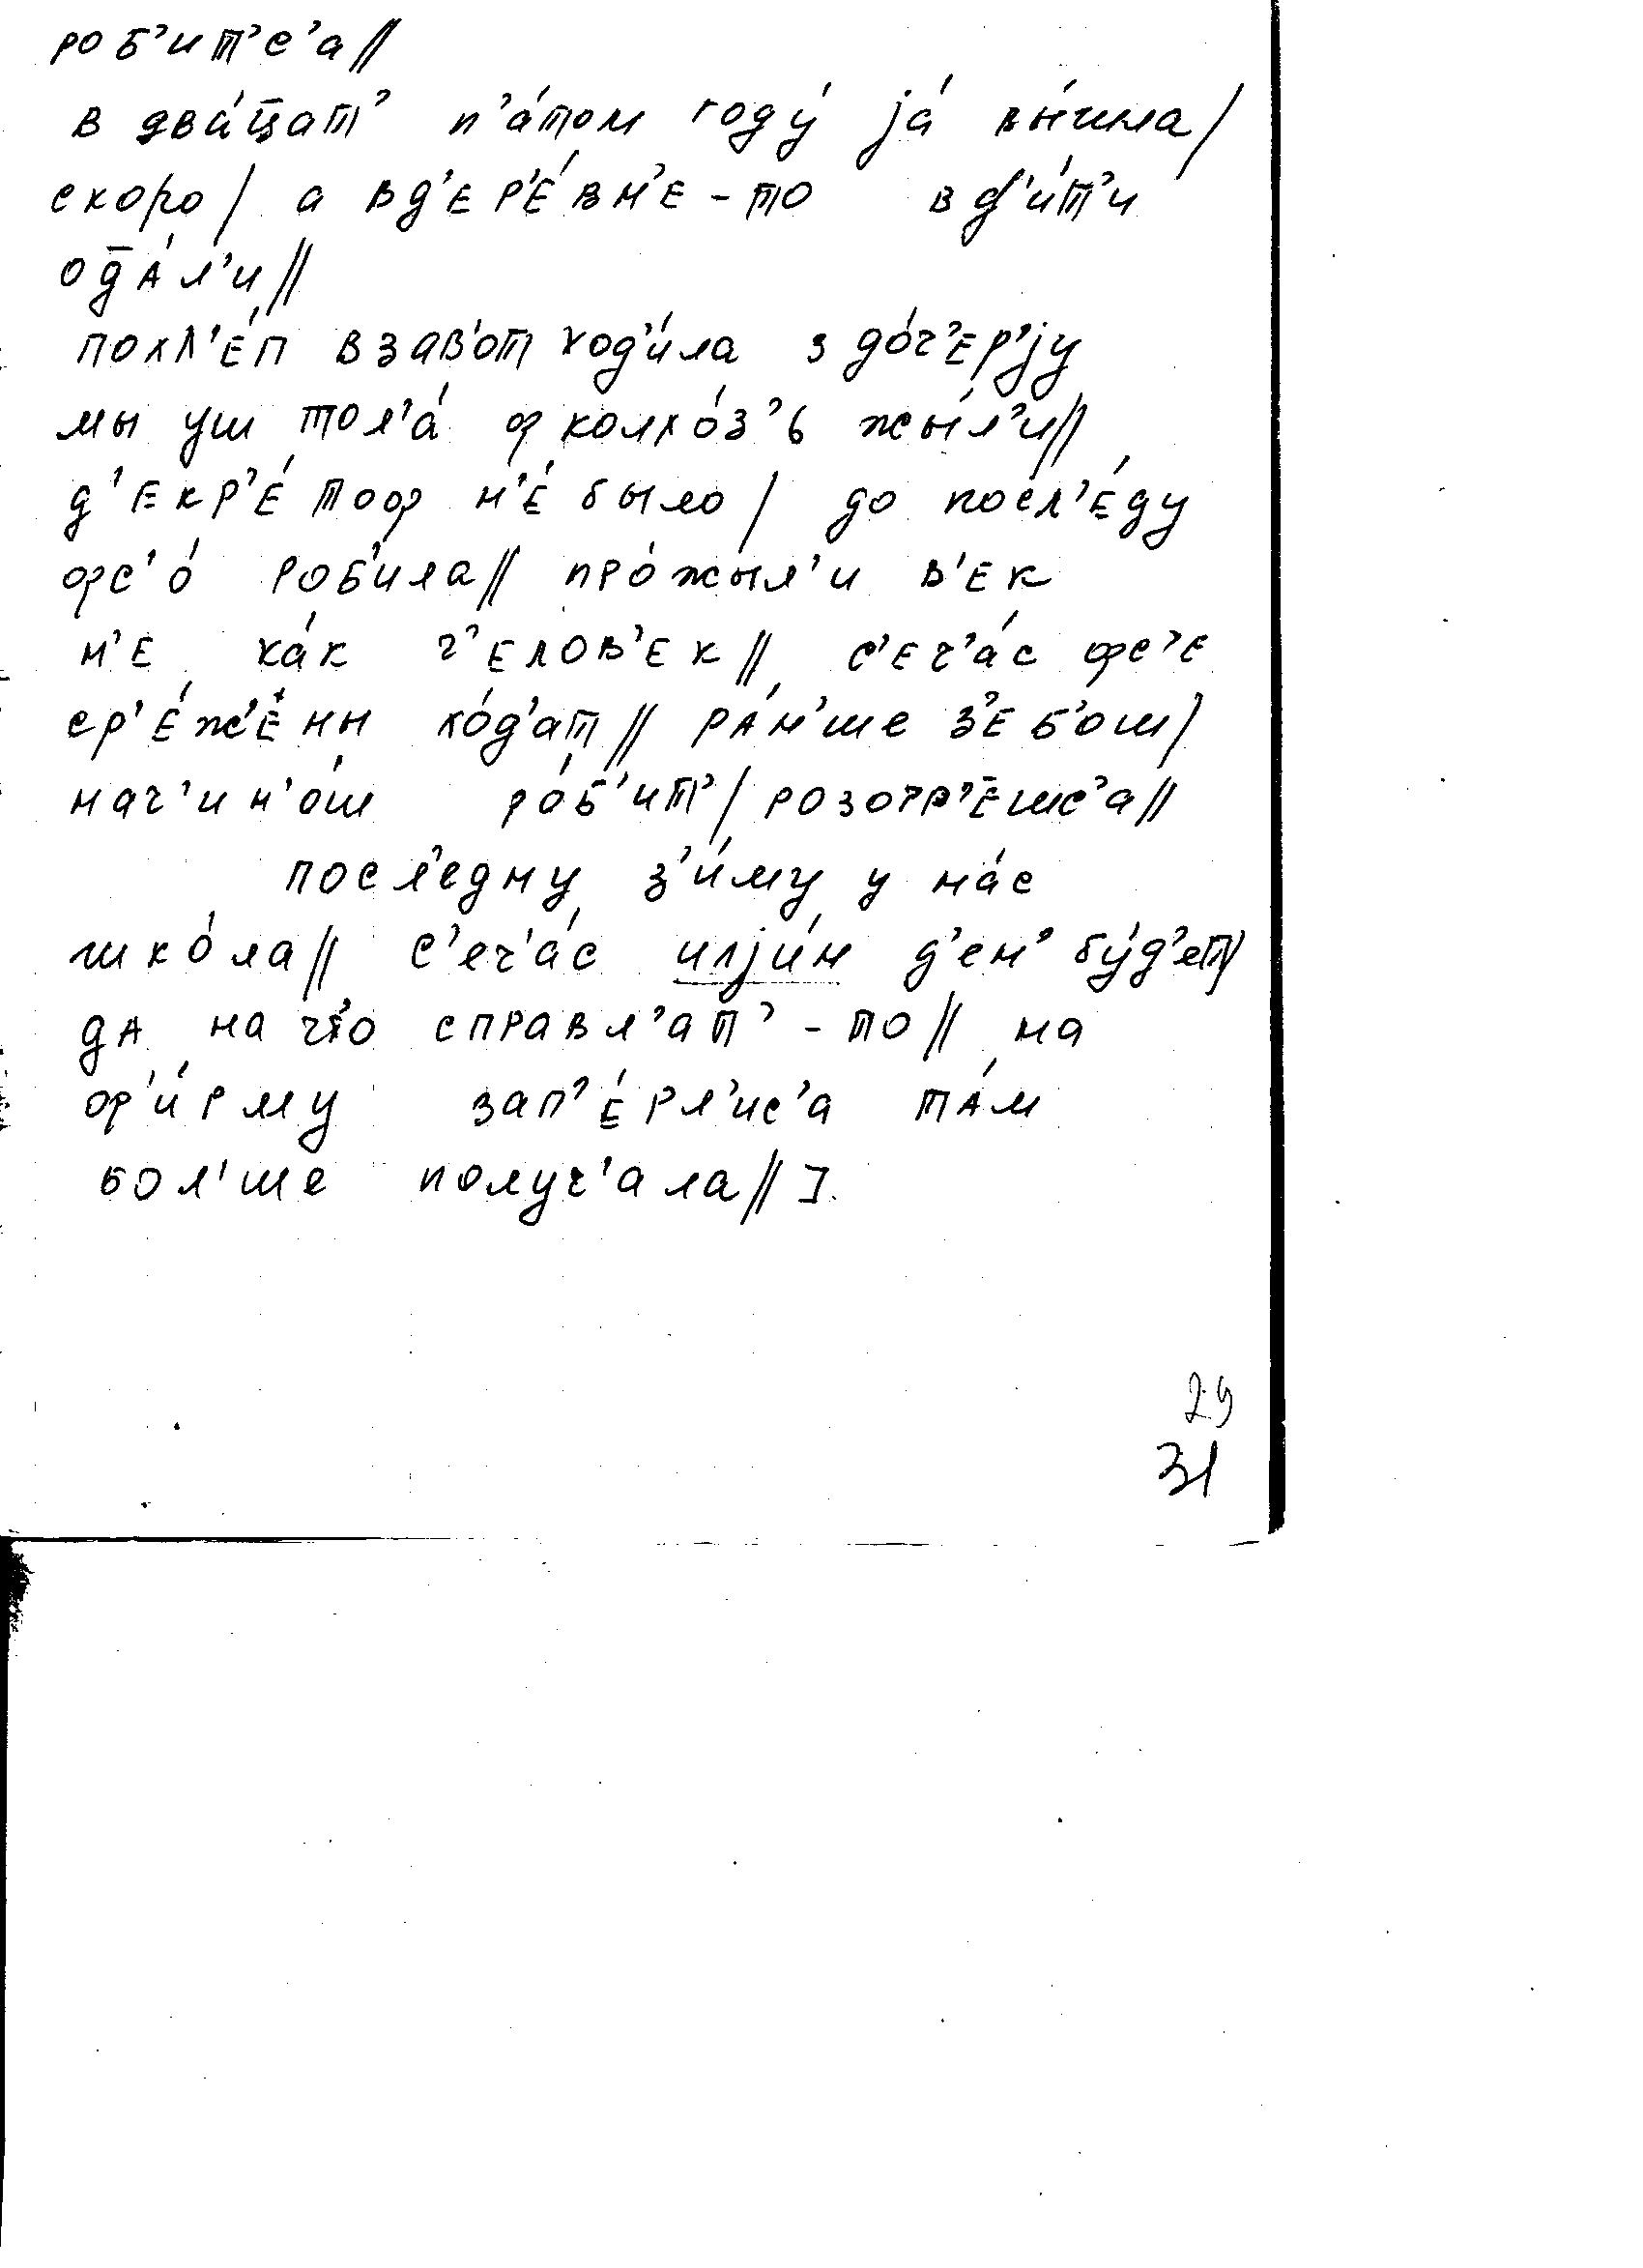 роб'ит'с'а//
в двá̄цат' п'áтом годý já вы́шла/
скоро/ а вд'ер'éвн'е-то вд'и́т'и
од̄áл'и//
похл'éп взавóт ход'и́ла з дóч'ер'jу
мы уш тол'á ф колхóз'ь жы́л'и//
д'екр'éтоф н'é было/ до посл'éду
фс'ó роб'ила// прóжыл'и в'ек
н'е кáк ч'елов'ек// с'еч'áс фс'е
ср'éж'ены хóд'ат// рáн'ше з'еб'óш/
нач'ин'óш рóб'ит'/ розогр'éшс'а//
посл'едну з'и́му у нáс
шкóла// с'еч'áс илjи́н д'ен' бýд'ет/
да на что справл'ат'-то// на
ф'и́рму зап'éрл'ис'а тáм
бол'ше получ'ала//].
29
31